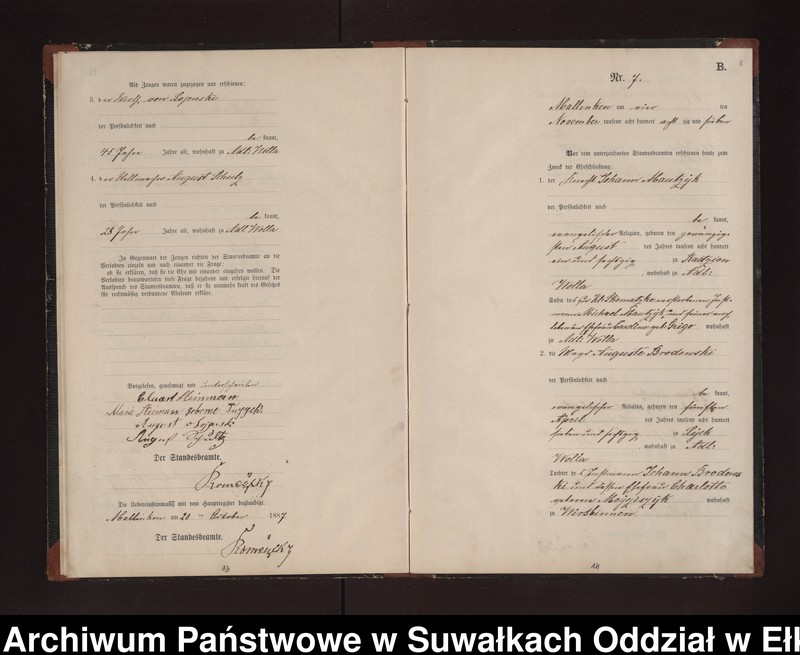 Als Zeugen waren zugezogen und erschienen:
3. der von Lojewski
der Persönlichkeit nach
be kannt,
45 Jahre Jahre alt, wohnhaft zu Adl. Wolla
4. der Stellmacher August Schulz
der Persönlichkeit nach
be kannt,
28 Jahre Jahre alt, wohnhaft zu Adl. Wolla
In Gegenwart der Zeugen richtete der Standesbeamte an die
Verlobten einzeln und nach einander die Frage:
ob sie erklären, daß sie die Ehe mit einander eingehen wollen. Die
Verlobten beantworteten diese Frage bejahend und erfolgte hierauf der
Ausspruch des Standesbeamten, daß er sie nunmehr kraft des Gesetzes
für rechtmäßig verbundene Eheleute erkläre.
Vorgelesen, genehmigt und unterschrieben
Steinmann
geboret
August
August Schultz
Der Standesbeamte.
Romeyßky
Die Uebereinstimmung mit dem Hauptregister beglaubigt.
Mallenken am 20 ten October 1887
Der Standesbeamte.
Romeyßky
13
B.
Nr. 7.
Mallenken am vier ten
November tausend acht hundert acht zig und sieben
Vor dem unterzeichneten Standesbeamten erschienen heute zum
Zweck der Eheschließung:
1. der Knecht Johann Mautzyk
der Persönlichkeit nach
be kannt,
evangelischer Religion, geboren den zwanzig-
sten August des Jahres tausend acht hundert
und sechszig zu Radzien
, wohnhaft zu Adl.
Wolla
Sohn des zu verstorbenen
Michael Mautzyk, und seiner
Ehefrau Caroline geb. Grigo wohnhaft
zu Adl. Wolla
2. die Magd Auguste Brodowski
der Persönlichkeit nach
be kannt,
evangelischer Religion, geboren den fünften
April des Jahres tausend acht hundert
sieben und sechszig zu Lyck
, wohnhaft zu Adl.
Wolla
Tochter des Instmann Johann Brodows-
ki und dessen Ehefrau Charlotte
geborene wohnhaft
zu Wersbinnen
14
Archiwum Państwowe w Suwałkach Oddział w Ełk